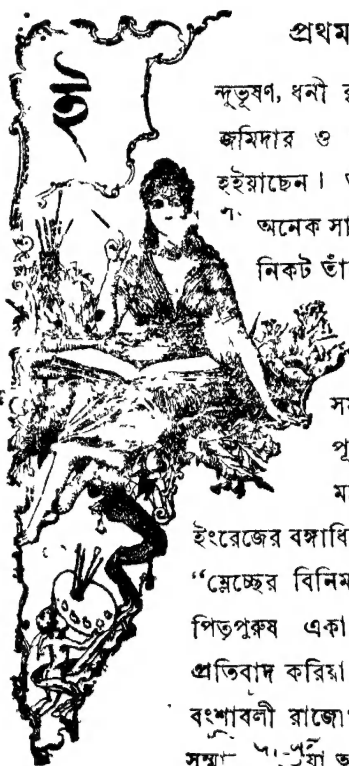 প্রথম
ইন্দুভূষণ, ধনী
জমিদার ও
হইয়াছেন।
অনেক সা
নিকট তাঁ
পূ
ম
ইংরেজের বঙ্গাধি
“ম্লেচ্ছের বিনিম
পিতৃপুরুষ একা
প্রতিবাদ করিয়া
বংশাবলী রাজো